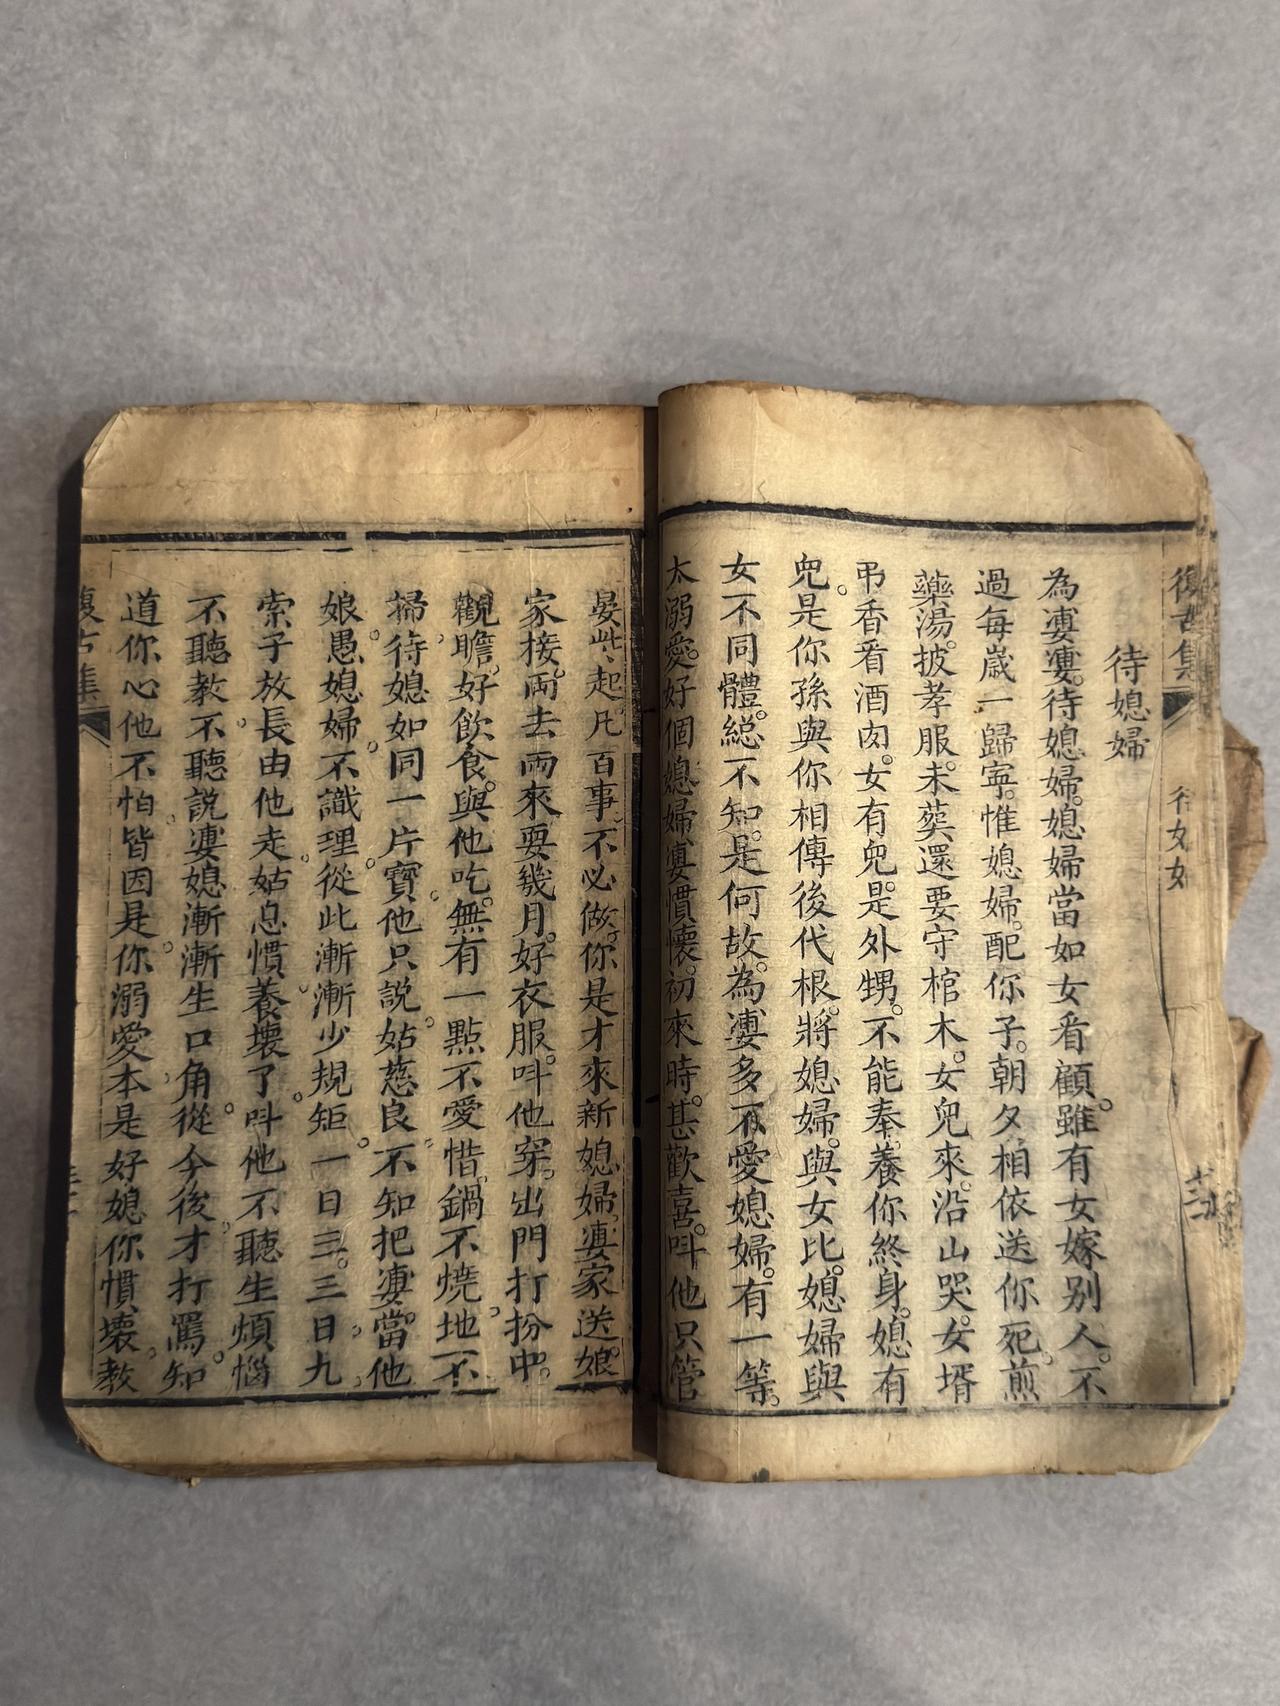 復古集
待媳婦
為婆婆。待媳婦。媳婦當如女看顧。雖有女嫁別人。不
過每歲一歸寧。惟媳婦。配你子。朝夕相依送你死。煎
藥湯。披孝服。未葬還要守棺木。女兒來。沿山哭。女壻
弔香看酒肉。女有兒。是外甥。不能奉養你終身。媳有
兒。是你孫與你相傳後代根。將媳婦。與女比。媳婦與
女不同體。總不知。是何故。為婆多不愛媳婦。有一等。
太溺愛。好個媳婦婆慣懷。初來時。甚歡喜。呌他只管
晏些起。凡百事。不必做。你是才來新媳婦。婆家送。娘
家接。兩去兩來耍幾月。好衣服。呌他穿。出門打扮中。
觀瞻。好飲食。與他吃。無有一點不愛惜。鍋不燒。地不
掃。待媳如同一片寶。他只說。姑慈良。不知把婆當他
娘。愚媳婦。不識理。從此漸漸少規矩。一日三。三日九。
索子放長由他走。姑息慣。養壞了。呌他不聽生煩惱。
不聽教。不聽說。婆媳漸漸生口角。從今後。才打罵。知
道你心他不怕。皆因是。你溺愛。本是好媳你慣壞。教
復古集